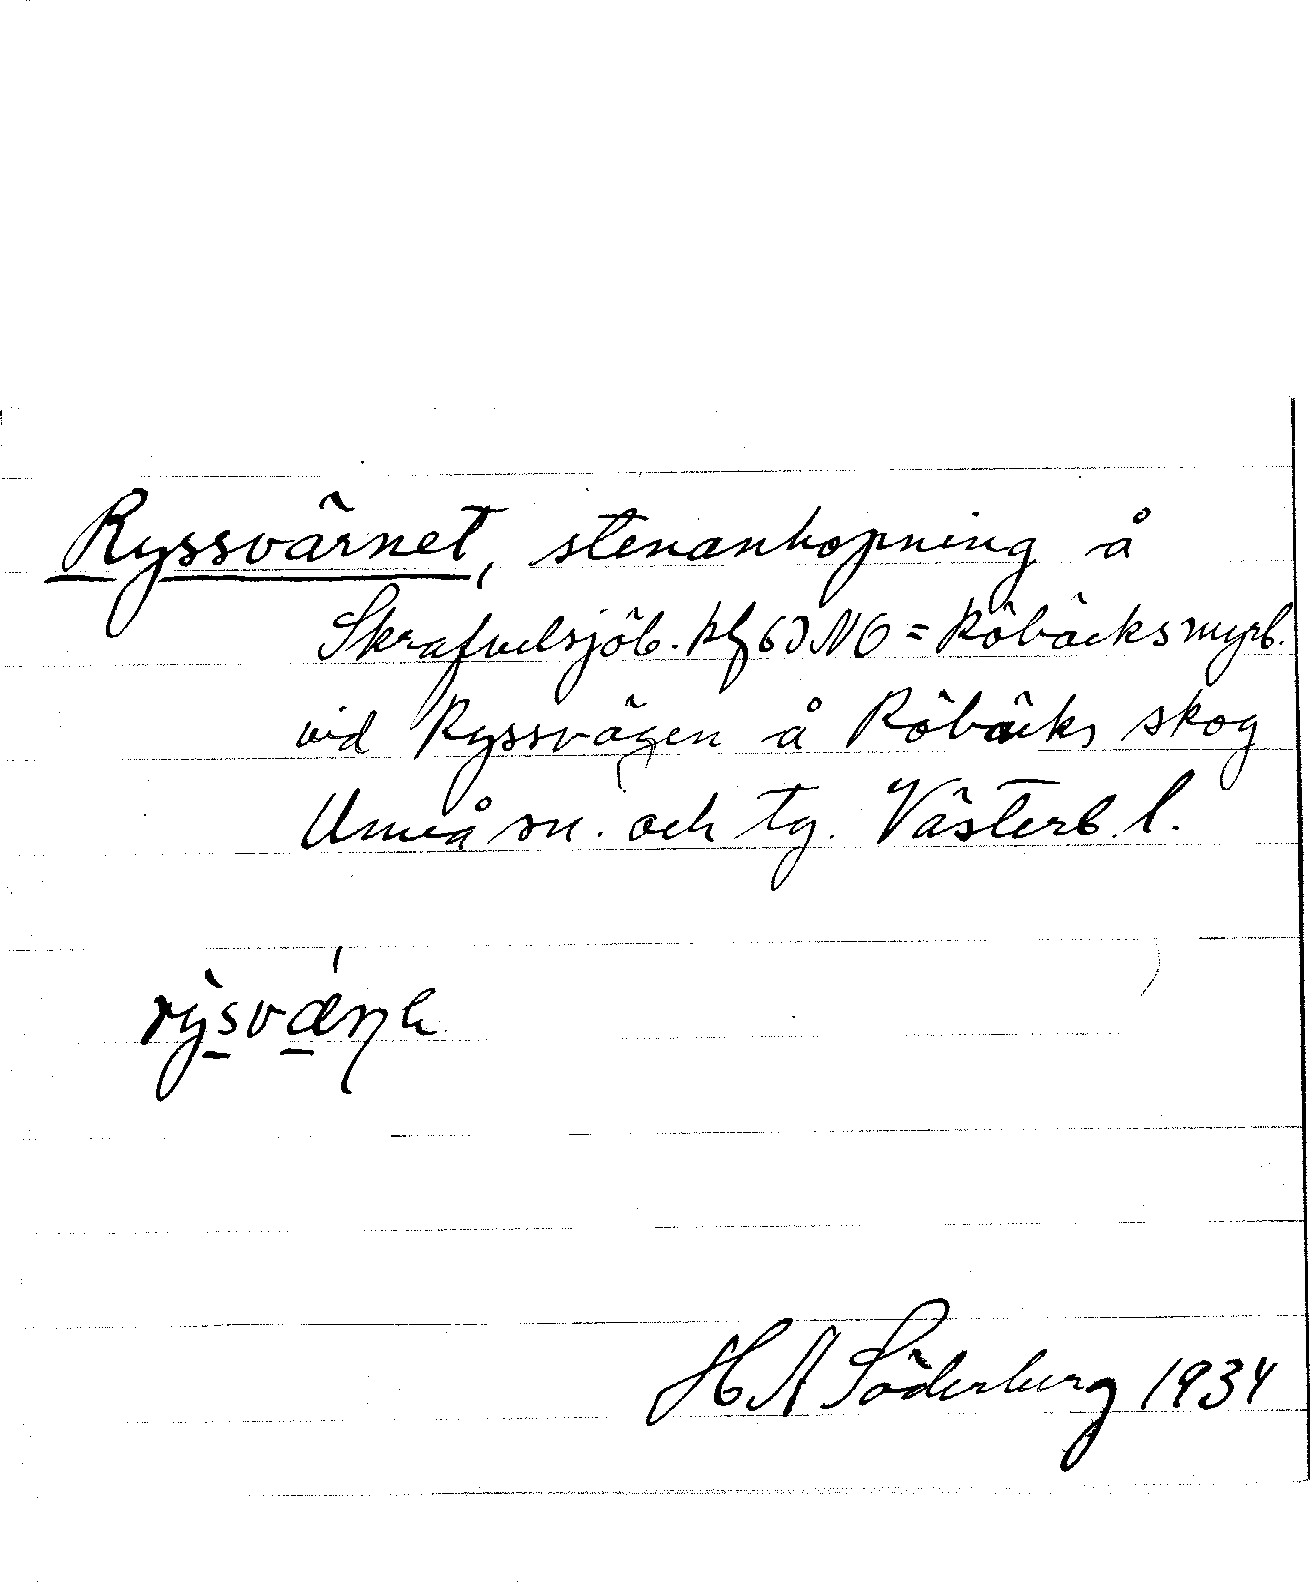 Ryssvärnet, stenanhopning å
Skrafvelsjöb. kf 63 NO = Röbäcksmyrb.
vid Ryssvägen å Röbäcks skog
Umeå sn. och tg. Västerb. l.
H A Söderberg 1934